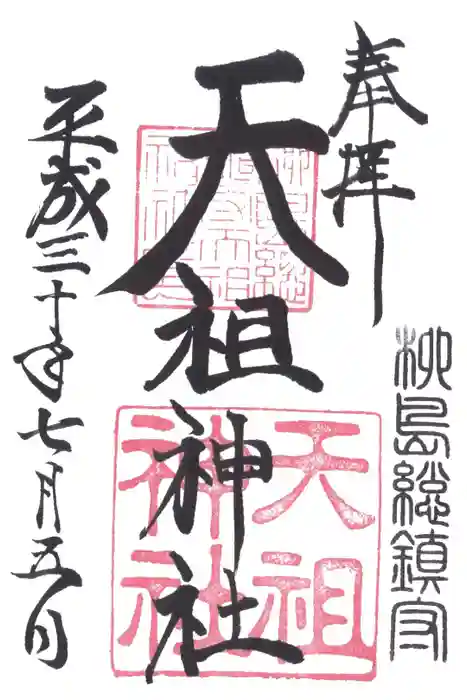 奉拝
柳島総鎮守
天祖神社
天祖神社
平成三十年七月五日